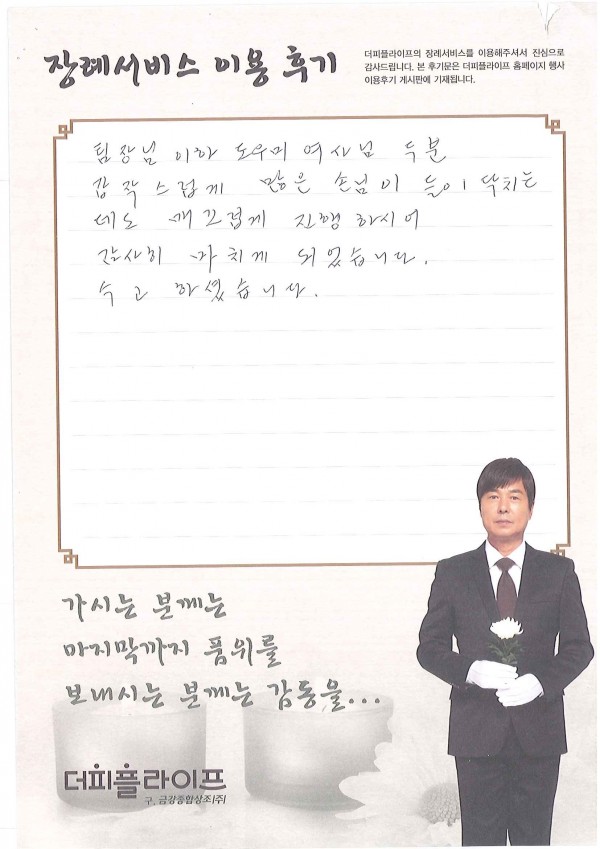 장례서비스 이용 후기
더피플라이프의 장례서비스를 이용해주셔서 진심으로
감사드립니다. 본 후기문은 더피플라이프 홈페이지 행사
이용후기 게시판에 기재됩니다.
팀장님 이하 도우미 여사님 두분
갑작스럽게 많은 손님이 들이닥치는
데도 매끄럽게 진행 하시어
감사히 마치게 되었습니다.
수고 하셨습니다.
가시는 분께는
마지막까지 품위를
보내시는 분께는 감동을...
더피플라이프
구. 금강종합상조(주)